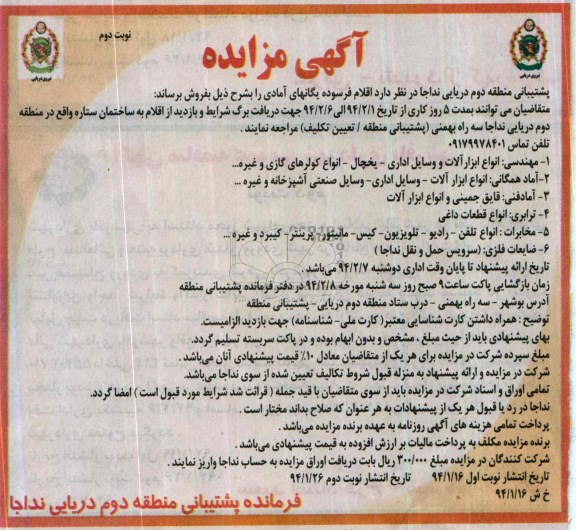 نوبت دوم
آگهی مزایده
پشتیبانی منطقه دوم دریایی نداجا در نظر دارد اقلام فرسوده یگانهای آمادی را بشرح ذیل بفروش برساند:
متقاضیان می توانند بمدت ۵ روز کاری از تاریخ ۹۴/۲/۱ الی ۹۴/۲/۶ جهت دریافت برگ شرایط و بازدید از اقلام به ساختمان ستاره واقع در منطقه
دوم دریایی نداجا سه راه بهمنی (پشتیبانی منطقه / تعیین تکلیف) مراجعه نمایند .
تلفن تماس ۰۹۱۷۹۹۷۸۴۰۱
۱- مهندسی: انواع ابزارآلات و وسایل اداری - یخچال - انواع کولرهای گازی و غیره...
۲-آماد همگانی: انواع ابزار آلات - وسایل اداری- وسایل صنعتی آشپزخانه و غیره ...
۳- آمادفنی: قایق جمینی و انواع ابزار آلات
۴- ترابری: انواع قطعات داغی
۵- مخابرات : انواع تلفن - رادیو - تلویزیون - کیس- مانیتور- پرینتر- کیبرد و غیره ...
۶- ضایعات فلزی: (سرویس حمل و نقل نداجا )
تاریخ ارائه پیشنهاد تا پایان وقت اداری دوشنبه ۹۴/۲/۷ می‌باشد .
زمان بازگشایی پاکت ساعت ۹ صبح روز سه شنبه مورخه ۹۴/۲/۸ در دفتر فرمانده پشتیبانی منطقه
آدرس بوشهر - سه راه بهمنی - درب ستاد منطقه دوم دریایی- پشتیبانی منطقه
توضیح : همراه داشتن کارت شناسایی معتبر( کارت ملی- شناسنامه) جهت بازدید الزامیست.
بهای پیشنهادی باید از حیث مبلغ ، مشخص و بدون ابهام بوده و در پاکت سربسته تسلیم گردد.
مبلغ سپرده شرکت در مزایده برای هر یک از متقاضیان معادل ۱۰٪ قیمت پیشنهادی آنان می‌باشد .
شرکت در مزایده و ارائه پیشنهاد به منزله قبول شروط تکالیف تعیین شده از سوی نداجا می‌باشد.
تمامی اوراق و اسناد شرکت در مزایده باید از سوی متقاضیان با قید جمله ( قرائت شد شرایط مورد قبول است ) امضا گردد.
نداجا در رد یا قبول هر یک از پیشنهادات به هر عنوان که صلاح بداند مختار است .
پرداخت تمامی هزینه های آگهی روزنامه به عهده برنده مزایده می‌باشد .
برنده مزایده مکلف به پرداخت مالیات بر ارزش افزوده به قیمت پیشنهادی می‌باشد .
شرکت کنندگان در مزایده مبلغ ۳۰۰/۰۰۰ ریال بابت دریافت اوراق مزایده به حساب نداجا واریز نمایند .
تاریخ انتشار نوبت اول ۹۴/۱/۱۶ تاریخ انتشار نوبت دوم ۹۴/۱/۲۶
خ ش ۹۴/۱/۱۶
فرمانده پشتیبانی منطقه دوم دریایی نداجا